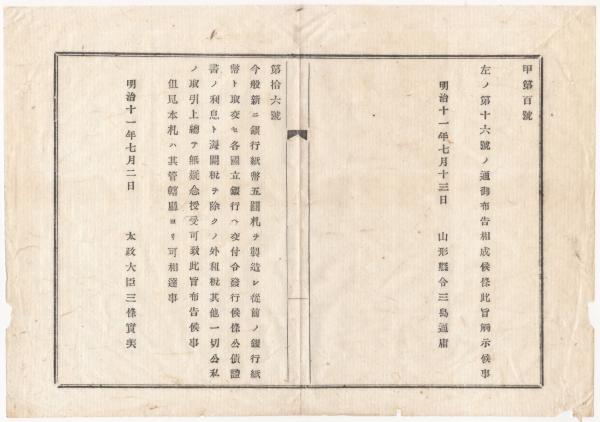 甲第百號
左ノ第十六號ノ通御布告相成候條此旨觸示候事
明治十一年七月十三日　山形縣令三島通庸
第拾六號
今般新ニ銀行紙幣五圓札ヲ製造シ從前ノ銀行紙
幣ト取交セ各國立銀行ヘ交付令發行候條公債證
書ノ利息ト海關稅ヲ除クノ外租稅其他一切公私
ノ取引上總テ無疑念授受可致此旨布告候事
但見本札ハ其管轄廳ヨリ可相達事
明治十一年七月二日　太政大臣三條實美